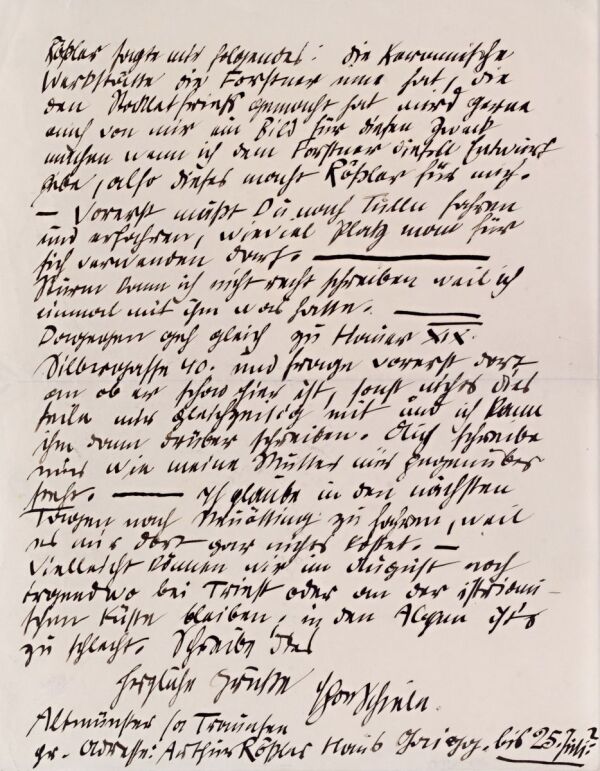 Rößler sagte mir folgendes: die Keramische
Werkstätte die Forstner inne hat, die
den Stocletfries gemacht hat wird gerne
auch von mir ein Bild für diesen Zweck
machen wenn ich dem Forstner diesen Entwurf
gebe, also dieses macht Rößler für mich.
— Vorerst mußt Du nach Tulln fahren
und erfahren, wieviel Platz man für
sich verwenden darf. —
kann ich nicht recht schreiben weil ich
einmal mit ihm was hatte. —
Dagegen geh gleich zu Hauer XIX.
Silbergasse 40. und frage vorerst dort
an ob er schon hier ist, sonst nichts dies
teile mir gleichzeitig mit und ich kann
ihm dann drüber schreiben. Auch schreibe
mir wie meine Mutter mir gegenüber
steht. — Ich glaube in den nächsten
Tagen nach Neuötting zu fahren, weil
es mir dort gar nichts kostet. —
Vielleicht können wir im August noch
irgendwo bei Triest oder an der istriani-
schen Küste bleiben, in den Alpen ist's
zu schlecht. Schreibe dies
herzliche Grüsse Egon Schiele.
Altmünster /a Traunsee
gr. Adresse: Arthur Rößler Haus bis 25. Juli?